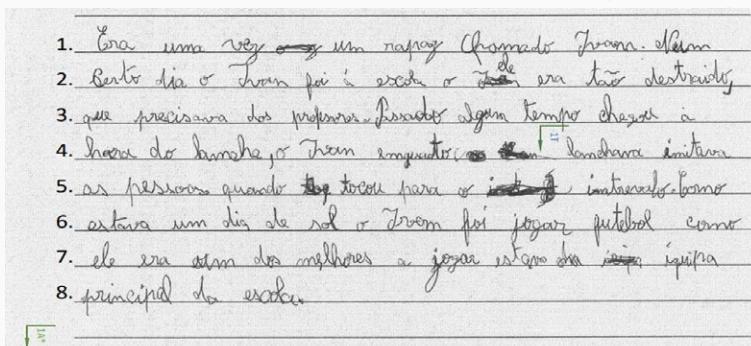 1. Era uma vez um rapaz chamado Ivan. Num
2. Certo dia o Ivan foi á escola o ele era tão destraido,
3. que precisava dos profesores. Passado algum tempo chegou a
4. hora do lanche, o Ivan enquanto lanchava imitava
1T
5. as pessoas quando tocou para o intrevalo. Como
6. estava um dia de sol o Ivan foi jogar futebol como
7. ele era um dos melhores a jogar estava na iquipa
8. principal da escola.
1A*